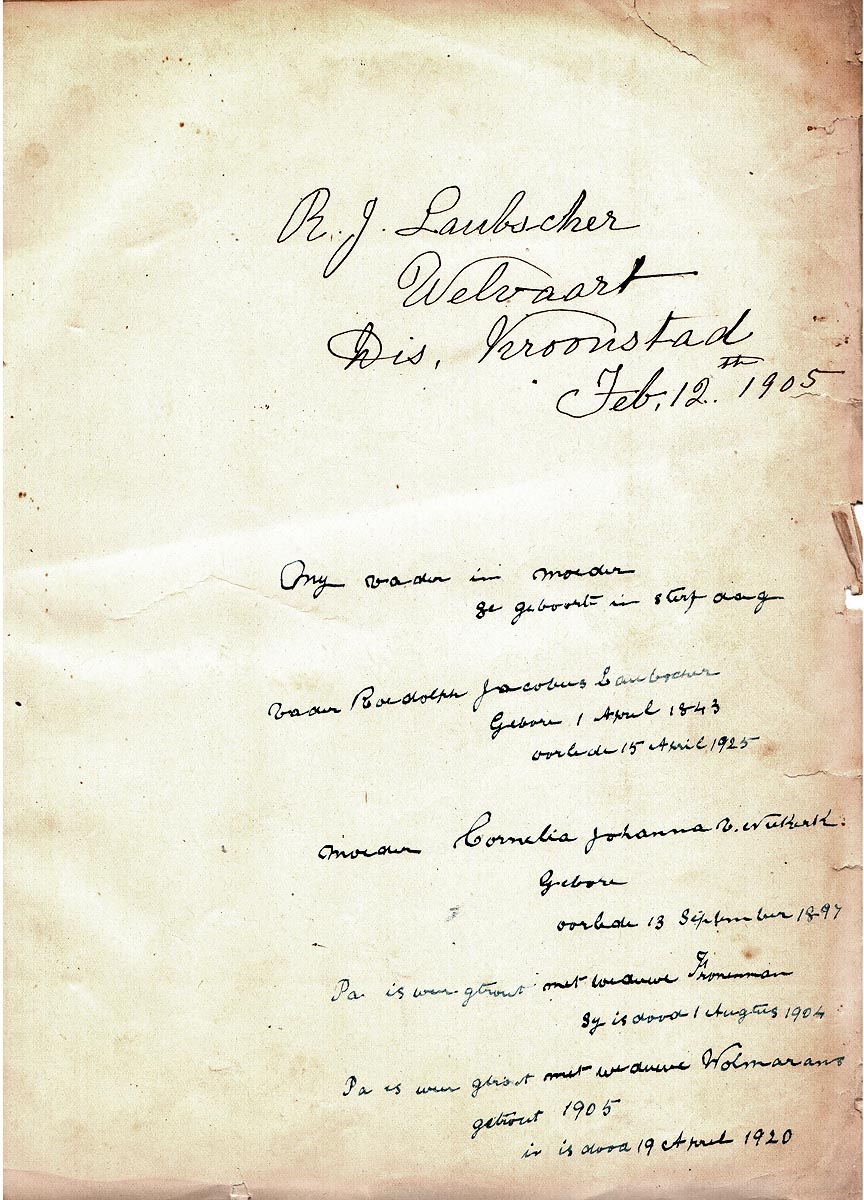 R. J. Laubscher
Welvaart
Dis, Kroonstad
Feb, 12th. 1905
My vader in moeder
se geboort in sterf daag
vader Roedolph Jacobus Laubscher
Gebore 1 April 1843
oorlede 15 April 1925
moeder Cornelia Johanna v. Niekerk.
Gebore
oorlede 13 September 1897
Pa is weer gtrout met weduwe
Sy is dood 1 Augtus 1904
Pa is weer gtrout met weduwe Wolmarans
getrout 1905
in is dood 19 April 1920